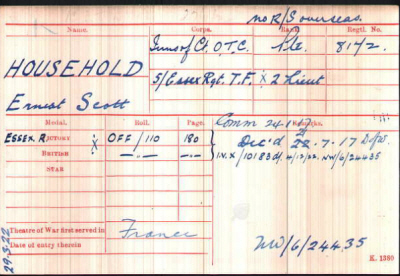 no R/S overseas.
Name. Corps. Rank. Regtl. No.
Inns of Ct. O.T.C. Pte. 8142.
HOUSEHOLD
5/Essex Rgt. T.F. x 2 Lieut
Ernest Scott
Medal. Roll. Page. Remarks.
Comm 24.1.17
ESSEX R VICTORY x OFF/110 180 Dec'd 28.7.17
BRITISH —"— —"— I.V.X/10183d. 4/12/22. NW/6/24435
STAR
Theatre of War first served in France
Date of entry therein
NW/6/24435
29.3.22
K. 1380